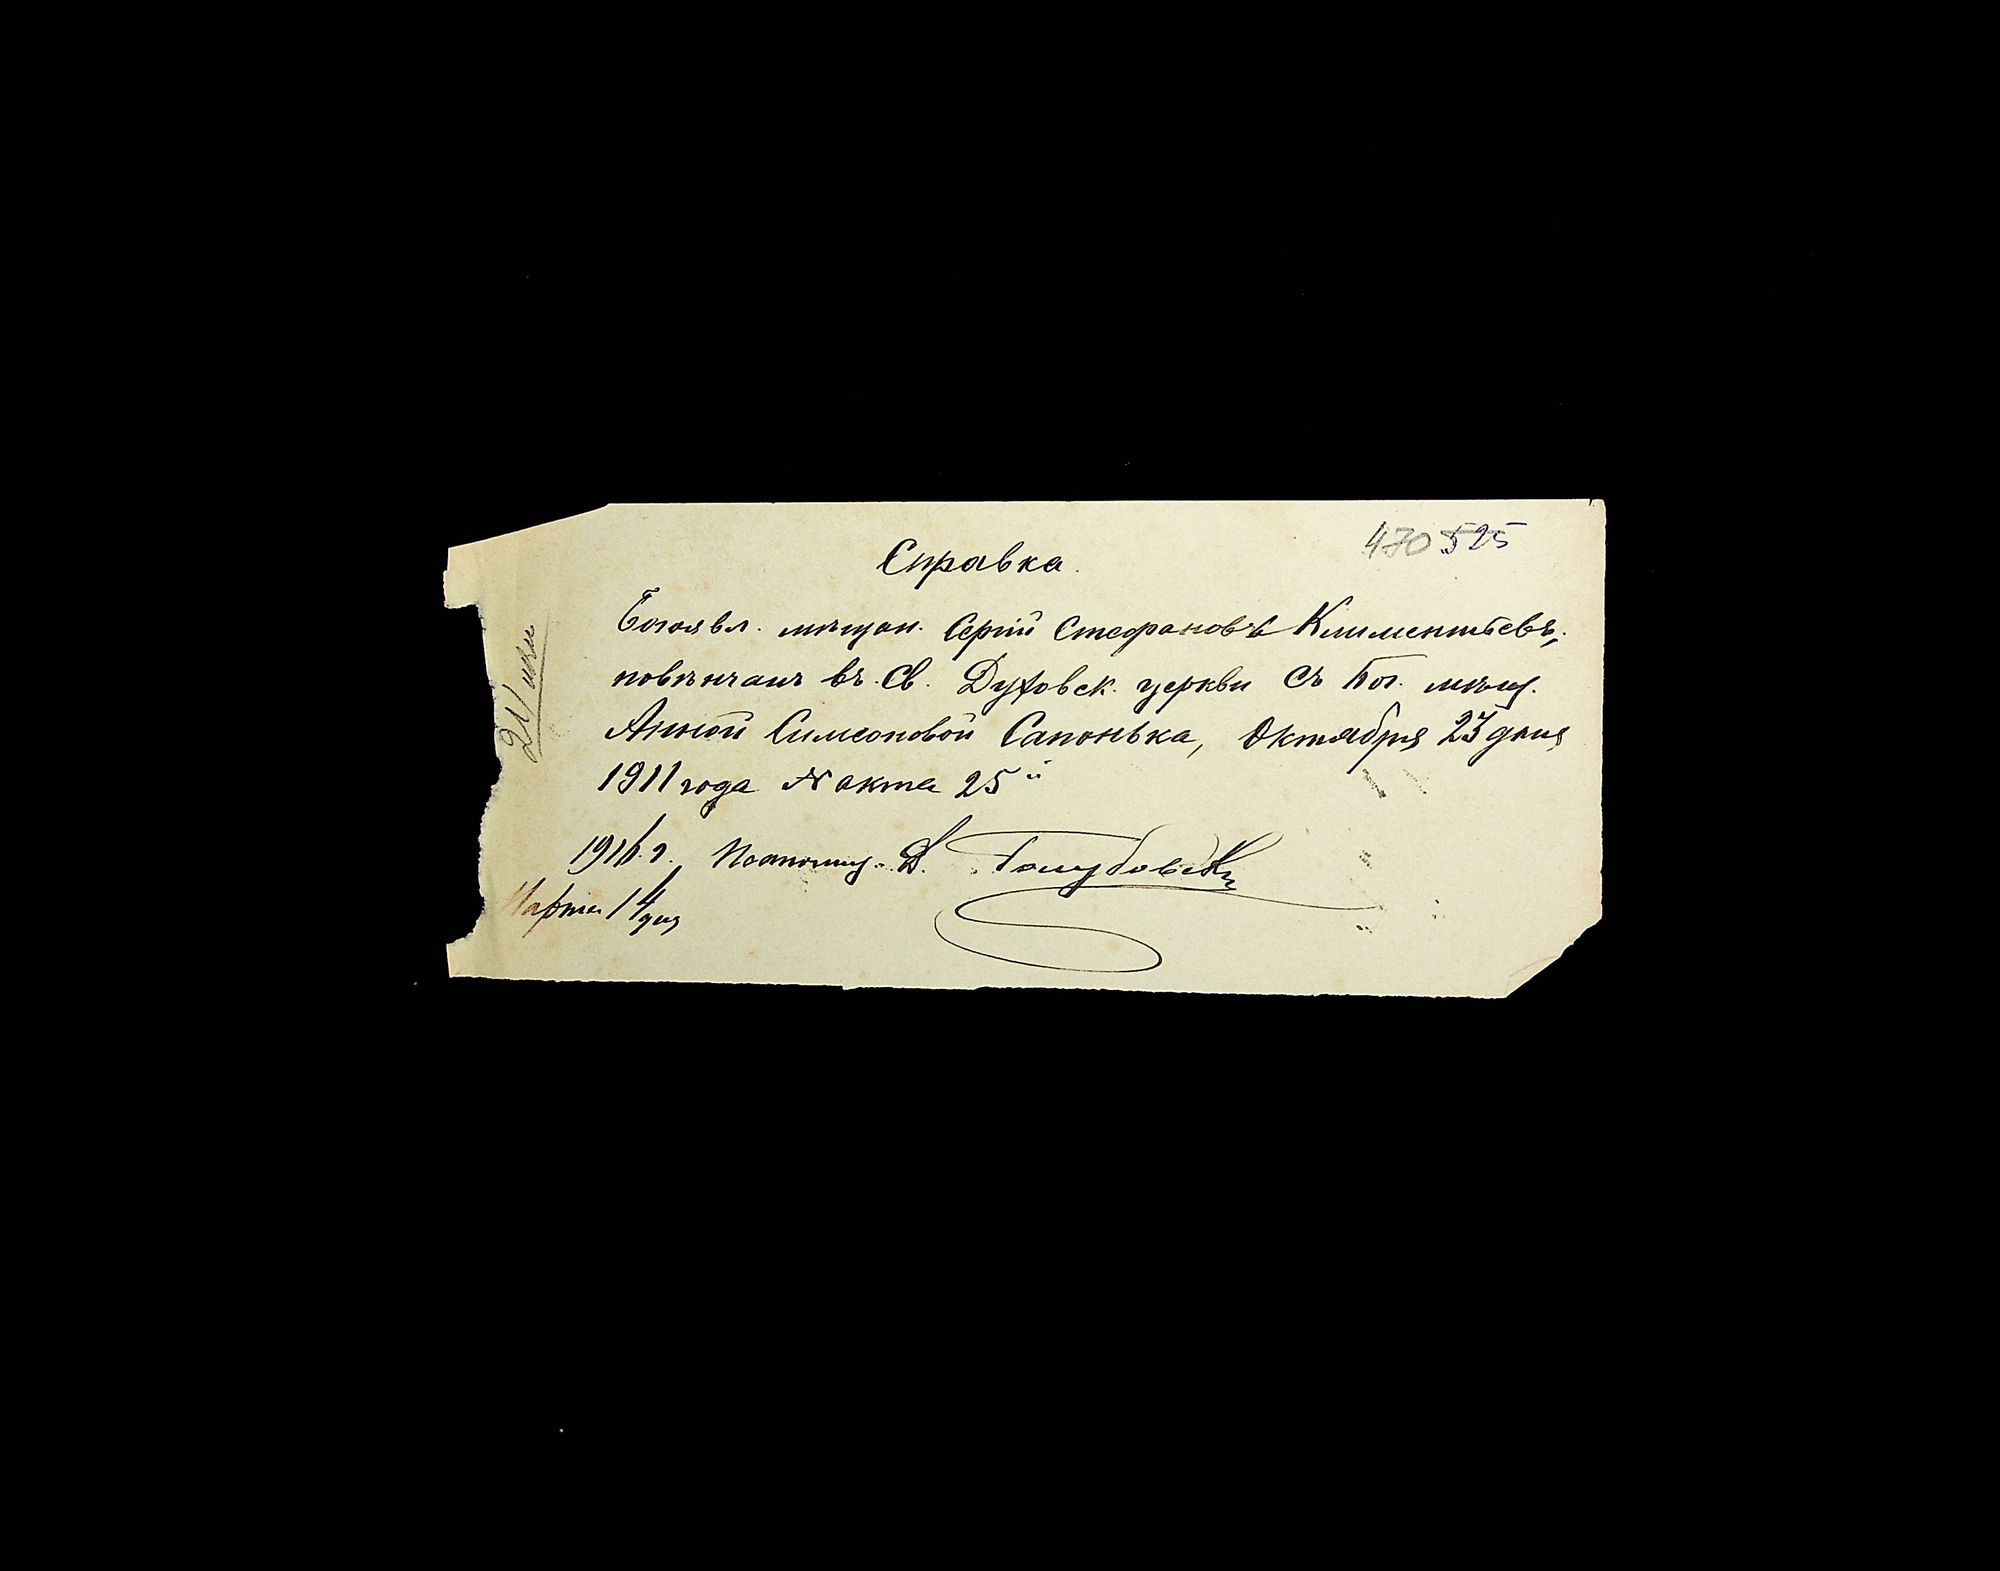 470 525
Справка.
Богоявл. мѣщан. Сергій Стефановъ Климентьевъ,
повѣнчанъ въ Св. Духовск. церкви съ Бог. мѣщ.
Анной Симеоновой Сапонька, Октября 23 дня
1911 года № акта 25й
1916 г. Псаломщ. А. Голубовск
Марта 14 дня